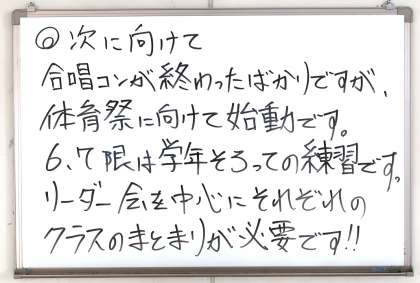 ◎次に向けて
合唱コンが終わったばかりですが、
体育祭に向けて始動です。
6、7限は学年そろっての練習です。
リーダー会を中心にそれぞれの
クラスのまとまりが必要です!!